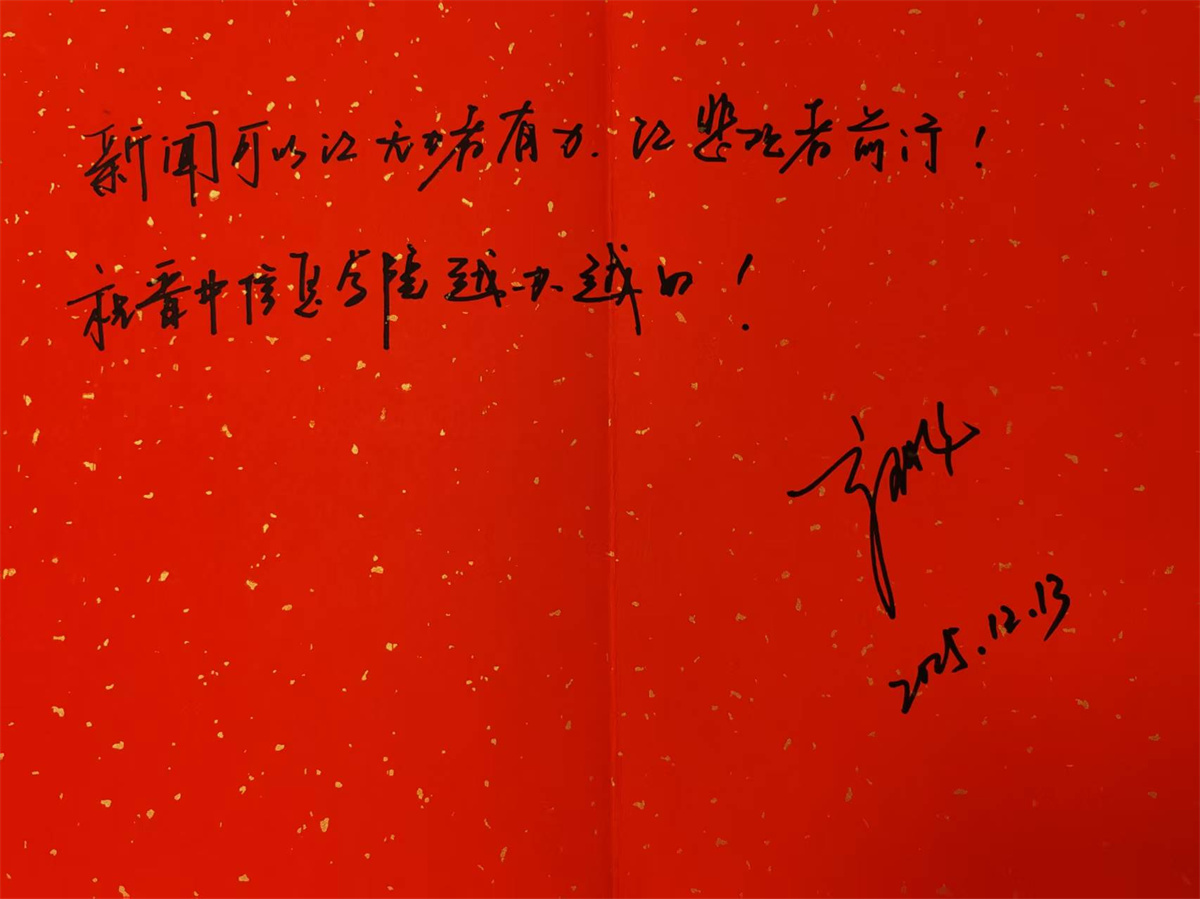 新闻可以让无力者有力，让悲观者前行！
祝晋中信息学院越办越好！
2025.12.13